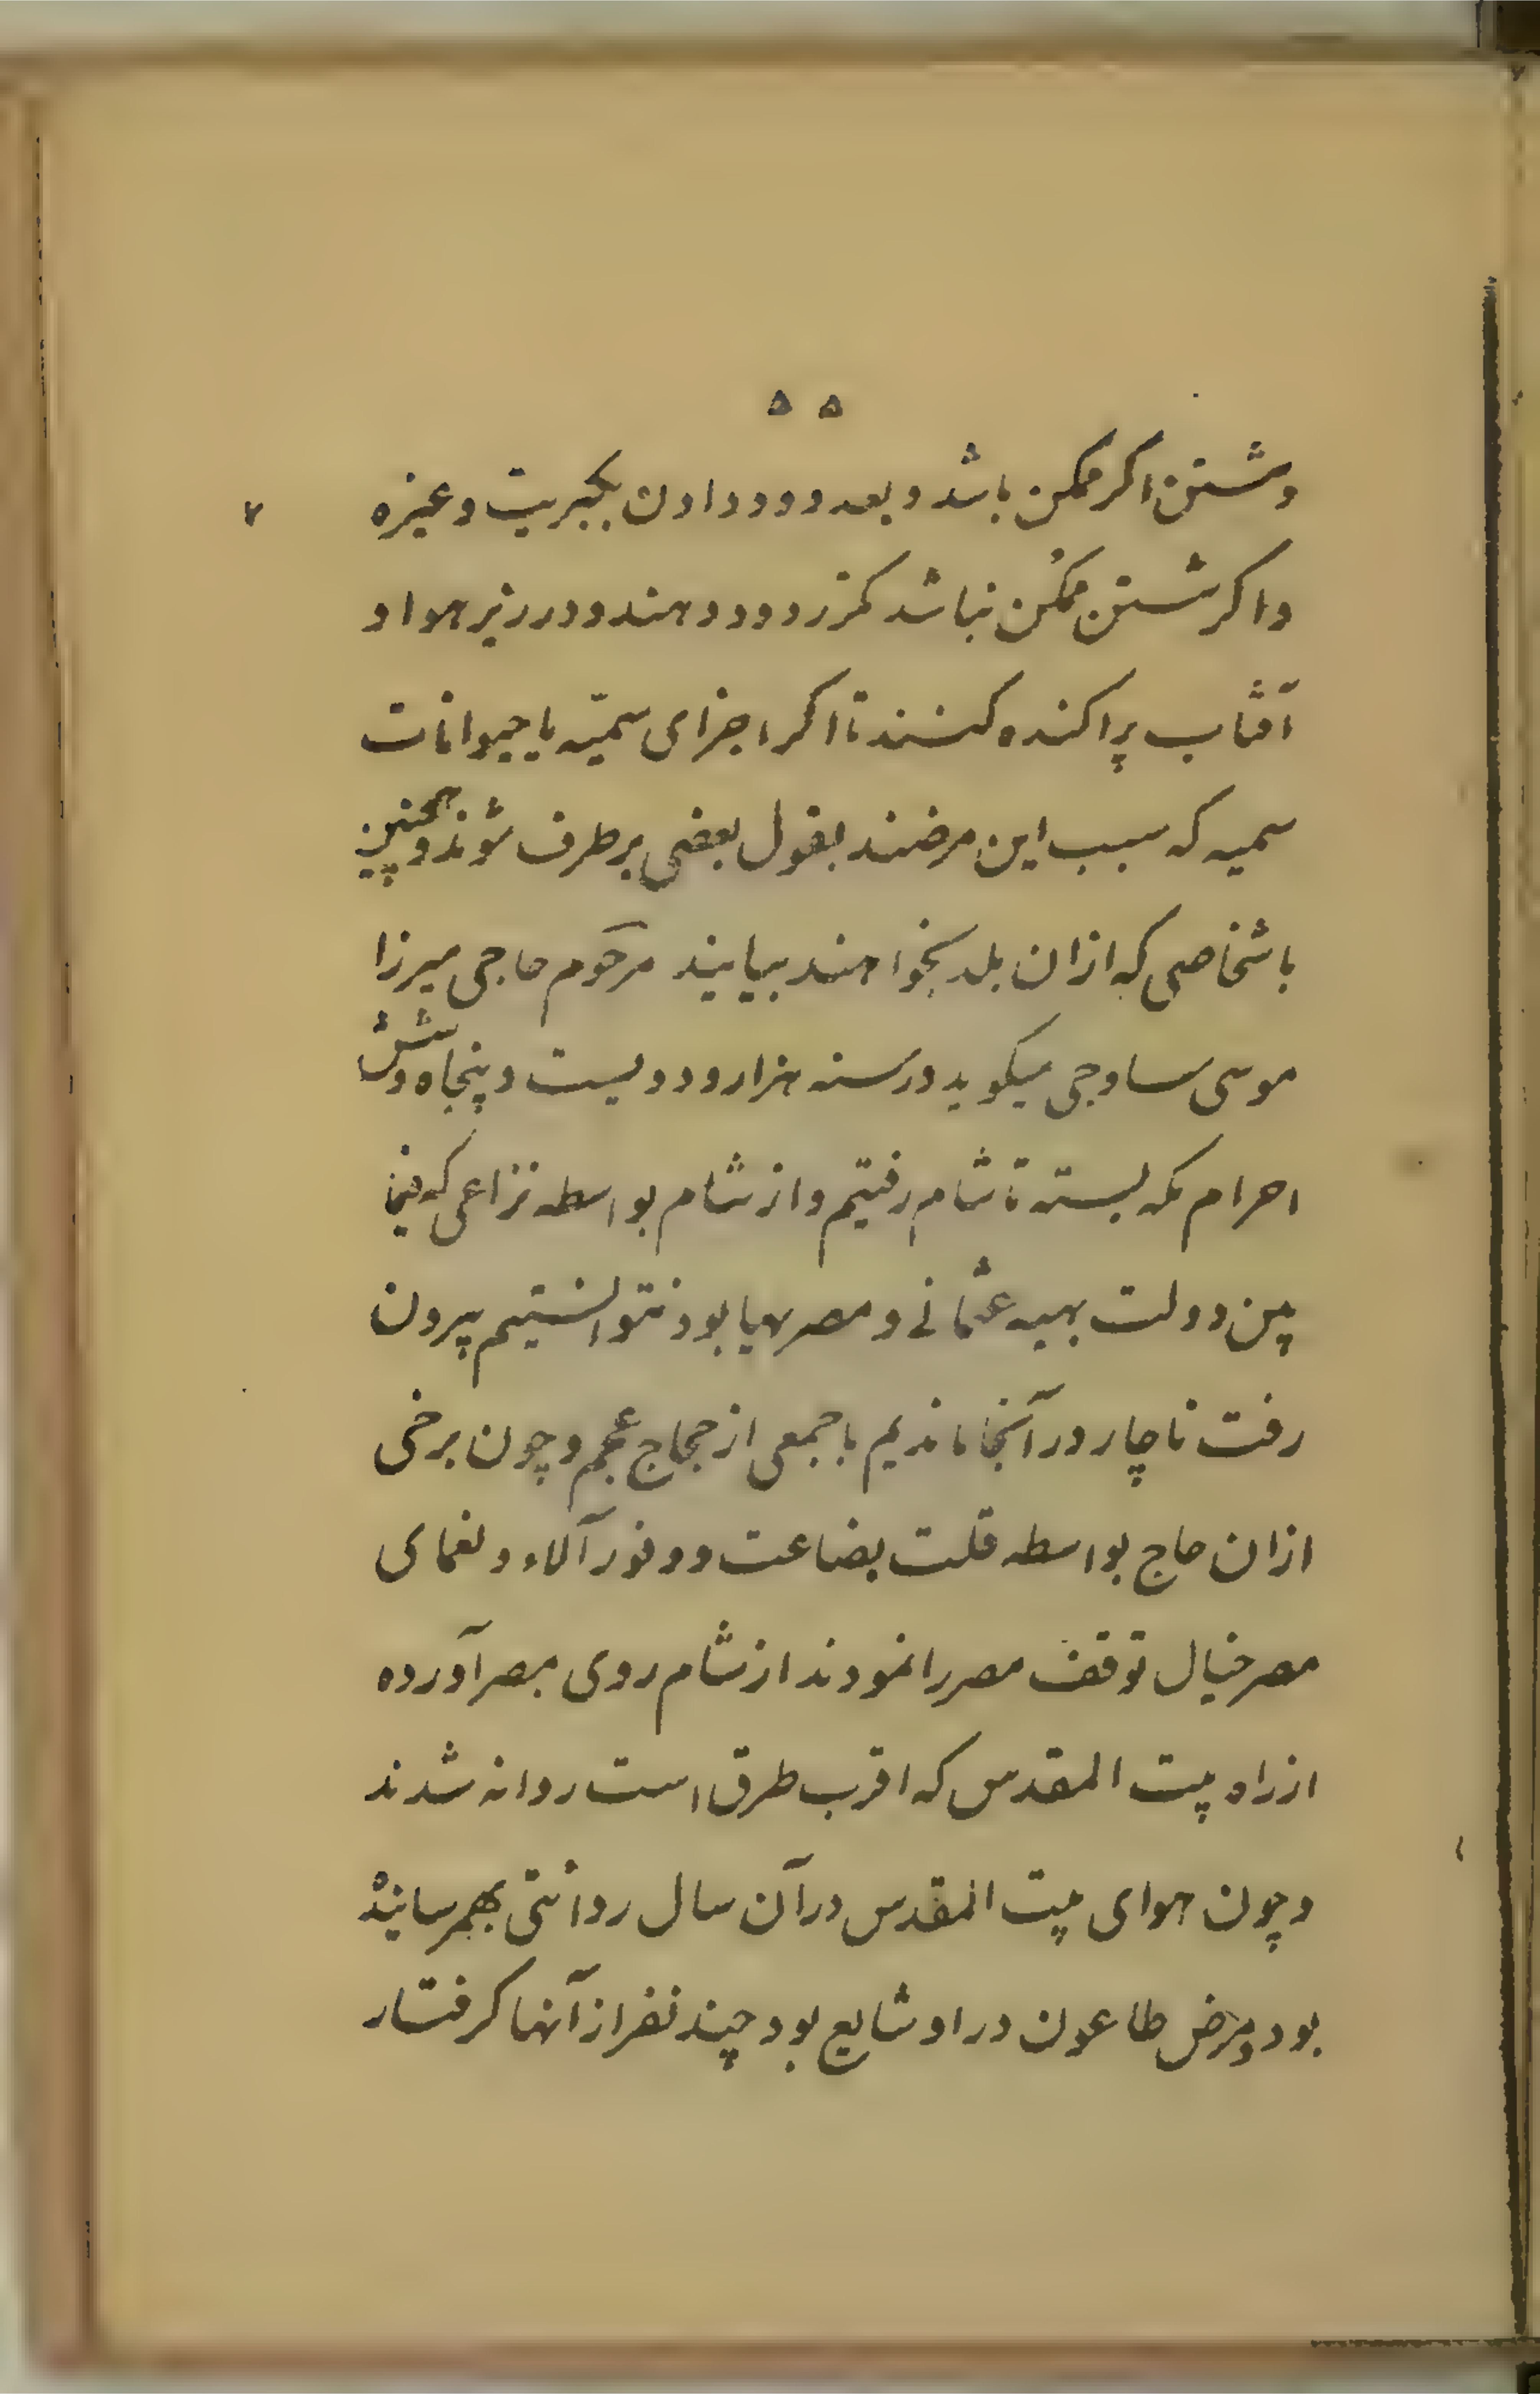 ۵۵
وشستن اکر ممکن باشد و بعد دود دادن بکبریت و غیره
واکر شستن ممکن نباشد مکرر دود دهند و در زیر هوا و
آفتاب پراکنده کنند تا اکر اجزای سمیّه یا حیوانات
سمیه که سبب این مرضند بقول بعضی برطرف شوند و همچنین
باشخاصی که ازان بلد بخواهند بیایند مرحوم حاجی میرزا
موسی ساوجی میکوید در سنه هزار و دویست و پنجاه و شش
احرام مکه بسته تا شام رفتیم و از شام بواسطه نزاعی که فیما
بین دولت بهیه عثمانی و مصریها بود نتوانستیم بیرون
رفت ناچار در آنجا ماندیم با جمعی از حجاج عجم و چون برخی
ازان حاج بواسطه قلت بضاعت و وفور آلاء و نعمای
مصر خیال توقف مصر را نمودند از شام روی بمصر آورده
از راه بیت المقدس که اقرب طرق است روانه شدند
و چون هوای بیت المقدس در آن سال ردائتی بهم رسانیده
بود و مرض طاعون در او شایع بود چند نفر از آنها کرفتار